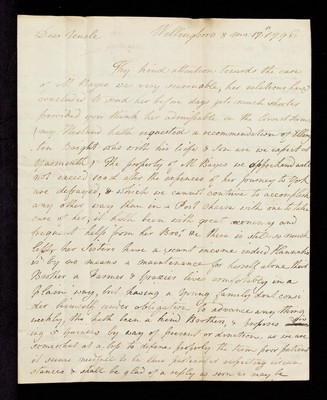 Dear Uncle Wellingboro 8 mo. 17th 1796
Thy kind attention towards the case
of M Bayes we very seasonable, her relations have
concluded to send her before days get much shorter
provided you think her admissible in the circumstances
my Husband hath requested a recommendation of
Wright who with his wife & Son are we expect at
Yarmouth. The property of M Bayes we apprehend will
not exceed £ after the expences of her journey to York
are defrayed, & which we cannot contrive to accomplish
any other way than in a Post Chaise with one to take
care of her, it hath been with great economy and
frequent help from her Bror.
her Sisters have a scant income indeed Hannahs
is by no means a maintenance for herself alone, their
Brother a Farmer & Grazier lives comfortably in a
plain way, but having a young family dont consi
der himself under obligation to advance any thing
weekly, she hath been a kind Brother, & proposes
ing 5 Guineas by way of present or donation, as we are
somewhat at a loss to define properly the term poor patient
it seems needful to be thus particular respecting circum
stances & shall be glad of a reply as soon as may be